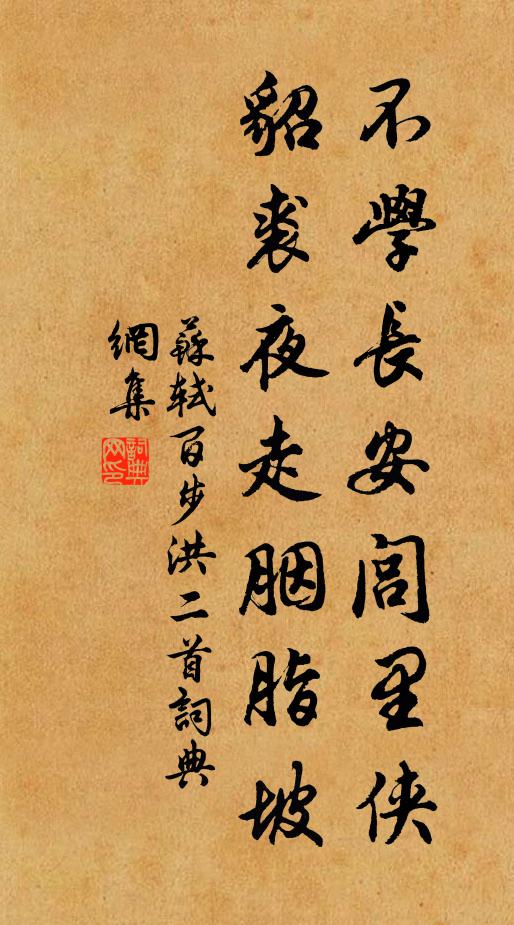 不學長安閭里俠
貂裘夜走胭脂坡
蘇軾百步洪二首詞典
網集
詞典
网印